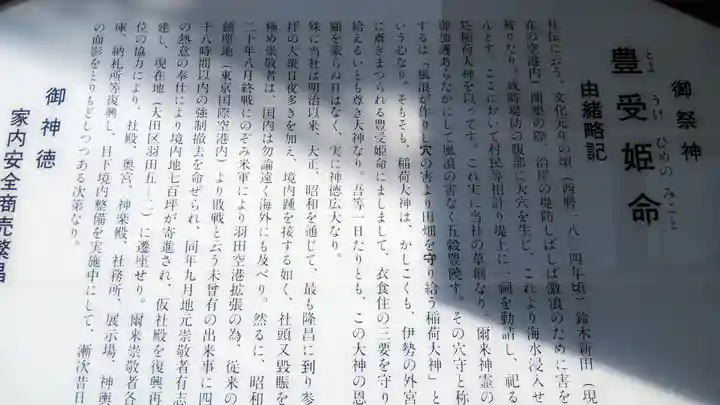 御祭神
豊受姫命
とようけひめのみこと
由緒略記
社伝に云う。文化元年の頃(西暦一八〇四年頃)鈴木新田(現
在の空港内)開墾の際、沿岸の堤防しばしば激浪のために害を
被りたり。或時堤防の腹部に大穴を生じ、これより海水侵入せ
んとす。ここにおいて村民等相計り堤上に一祠を勧請し、祀る
処稲荷大神を以ってす。これ実に当社の草創なり。爾来神霊の
御加護あらたかにして風浪の害なく五穀豊穣す。その穴守と称
するは「風浪が作りし穴の害より田畑を守り給う稲荷大神」と
いう心なり。そもそも、稲荷大神は、かしこくも、伊勢の外宮
に斎きまつられる豊受姫命にましまして、衣食住の三要を守り
給えるいとも尊き大神なり。吾等一日たりとも、この大神の恩
顧を蒙らぬ日はなく、実に神徳広大なり。
殊に当社は明治以来、大正、昭和を通じて、最も隆昌に到り参
拝の大衆日夜多きを加え、境内踵を接する如く、社頭又殷賑を
極め崇敬者は、国内は勿論遠く海外にも及べり。然るに、昭和
二十年八月終戦にのぞみ米軍により羽田空港拡張の為、従来の
鎮座地(東京国際空港内)より敗戦と云う未曾有の出来事に四
十八時間以内の強制撤去を命ぜられ、同年九月地元崇敬者有志
の熱意の奉仕により境内地七百坪が寄進され、仮社殿を復興再
建し、現在地(大田区羽田五ー二)に遷座せり。爾来崇敬者各
位の協力により、社殿、奥宮、神楽殿、社務所、展示場、神輿
庫、納札所等復興し、目下境内整備を実施中にして、漸次昔日
の面影をとりもどしつつある次第なり。
御神徳
家内安全商売繁昌